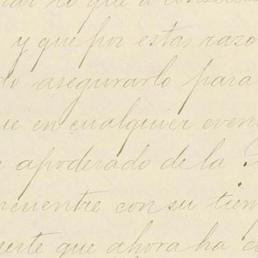 lo que a
y que por estas razo
lo asegurarlo para
ue en cualquier even
e apoderado de la
ncuentre con su tiem
uerte que ahora ha co